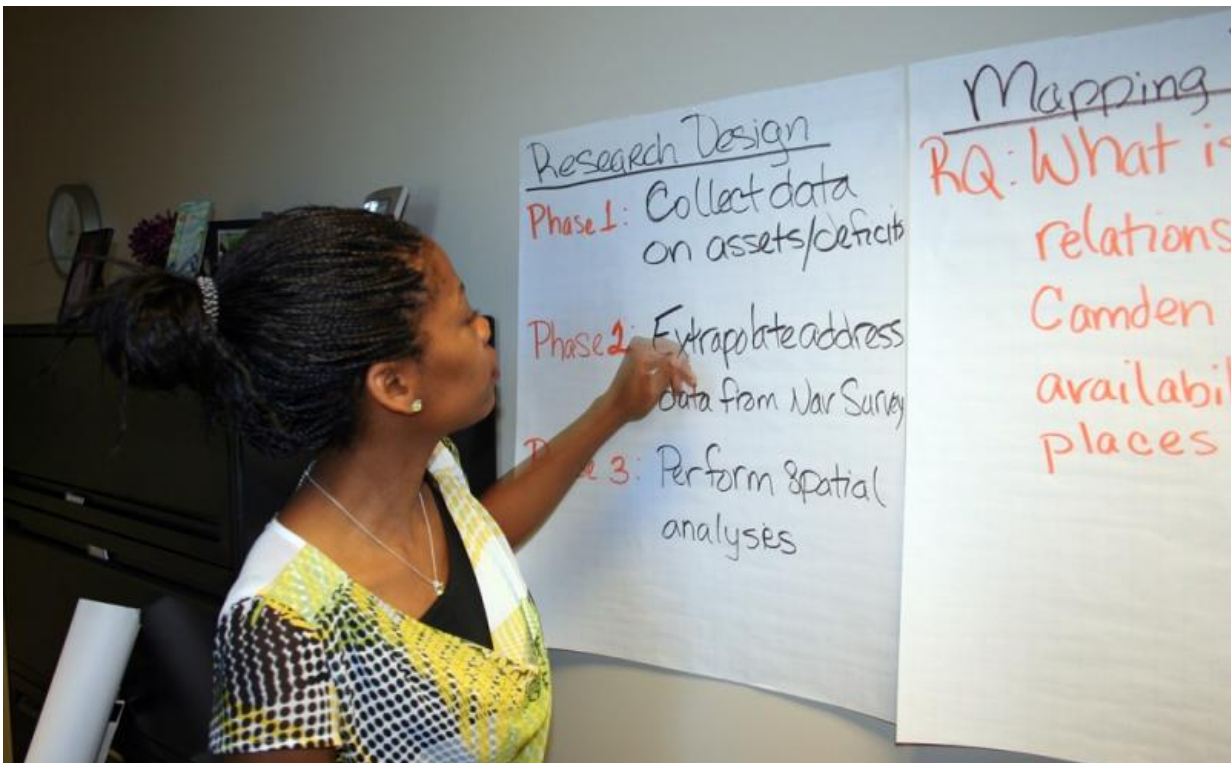 Research Design
Phase 1: Collect data
on assets/deficits
Phase 2: Extrapolate address
data from Nav Survey
3: Perform Spatial
analyses
Mapping
RQ: What is
relations
Camden
availabil
places